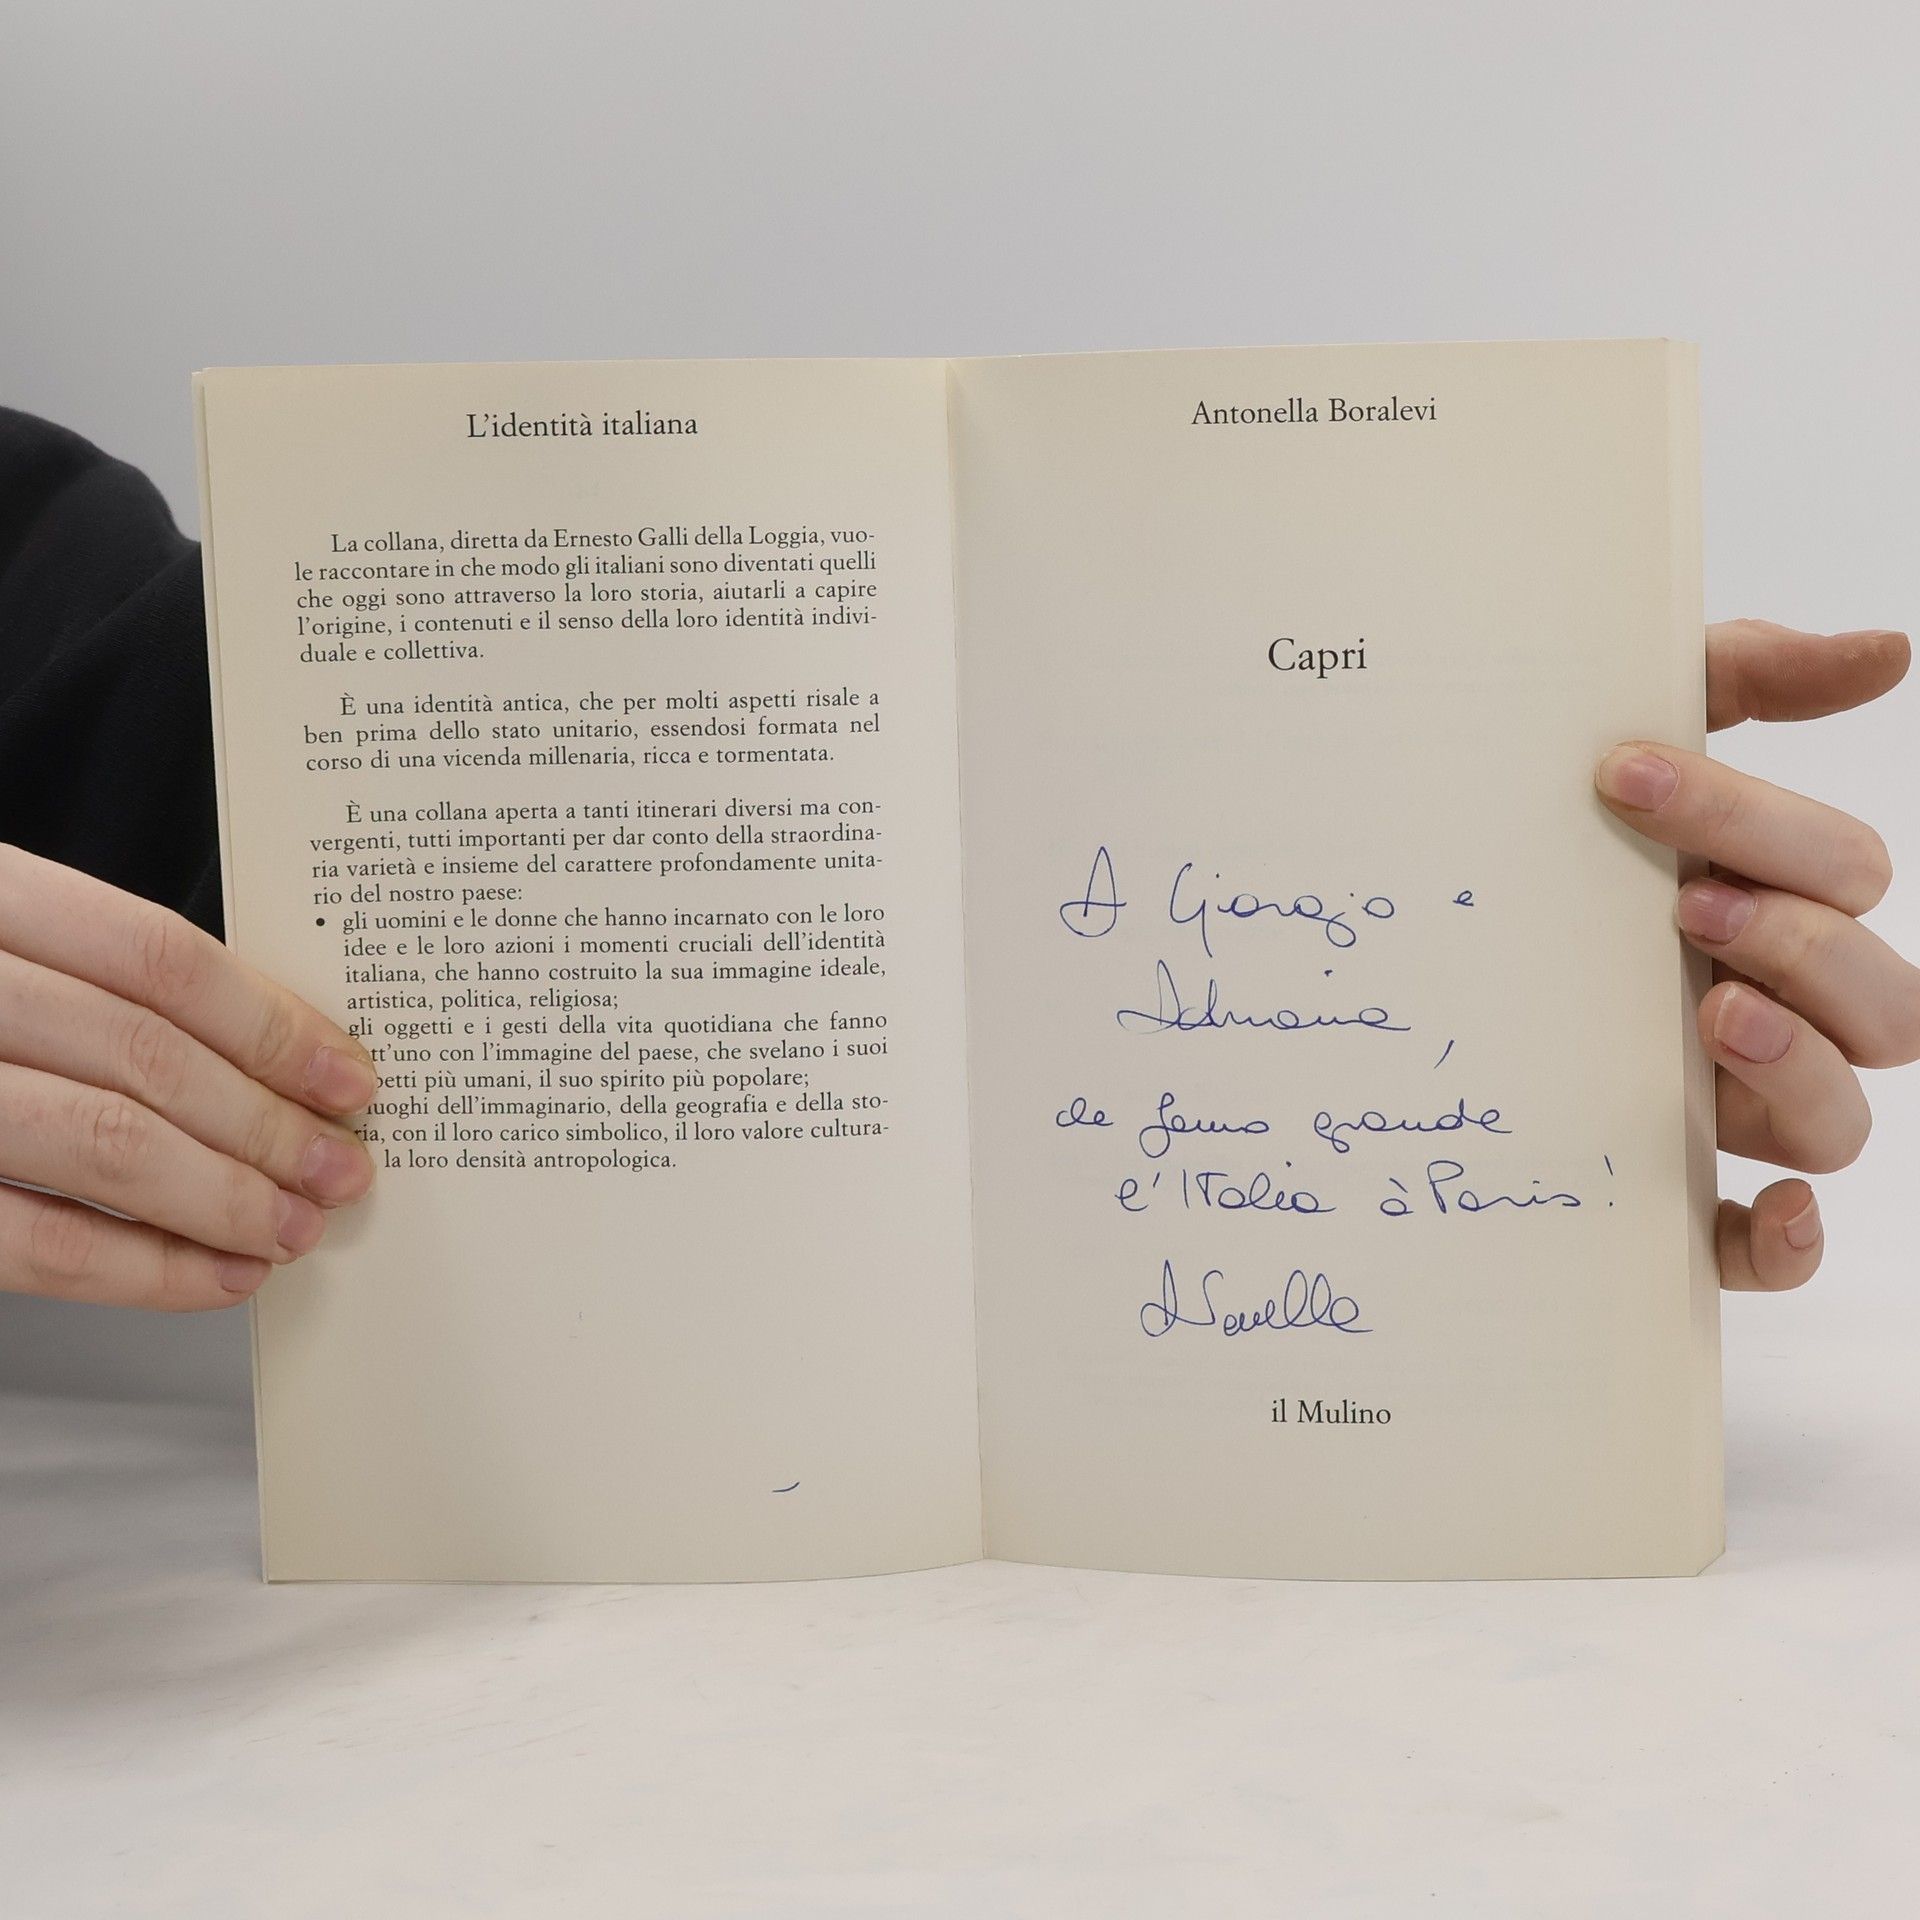 L'identità italiana
La collana, diretta da Ernesto Galli della Loggia, vuo-
le raccontare in che modo gli italiani sono diventati quelli
che oggi sono attraverso la loro storia, aiutarli a capire
l'origine, i contenuti e il senso della loro identità indivi-
duale e collettiva.
È una identità antica, che per molti aspetti risale a
ben prima dello stato unitario, essendosi formata nel
corso di una vicenda millenaria, ricca e tormentata.
È una collana aperta a tanti itinerari diversi ma con-
vergenti, tutti importanti per dar conto della straordina-
ria varietà e insieme del carattere profondamente unita-
rio del nostro paese:
• gli uomini e le donne che hanno incarnato con le loro
idee e le loro azioni i momenti cruciali dell'identità
italiana, che hanno costruito la sua immagine ideale,
artistica, politica, religiosa;
gli oggetti e i gesti della vita quotidiana che fanno
tt'uno con l'immagine del paese, che svelano i suoi
petti più umani, il suo spirito più popolare;
luoghi dell'immaginario, della geografia e della sto-
ria, con il loro carico simbolico, il loro valore cultura-
la loro densità antropologica.
Antonella Boralevi
Capri
A Giorgio e
Adriana,
che fanno grande
l'Italia à Paris!
il Mulino